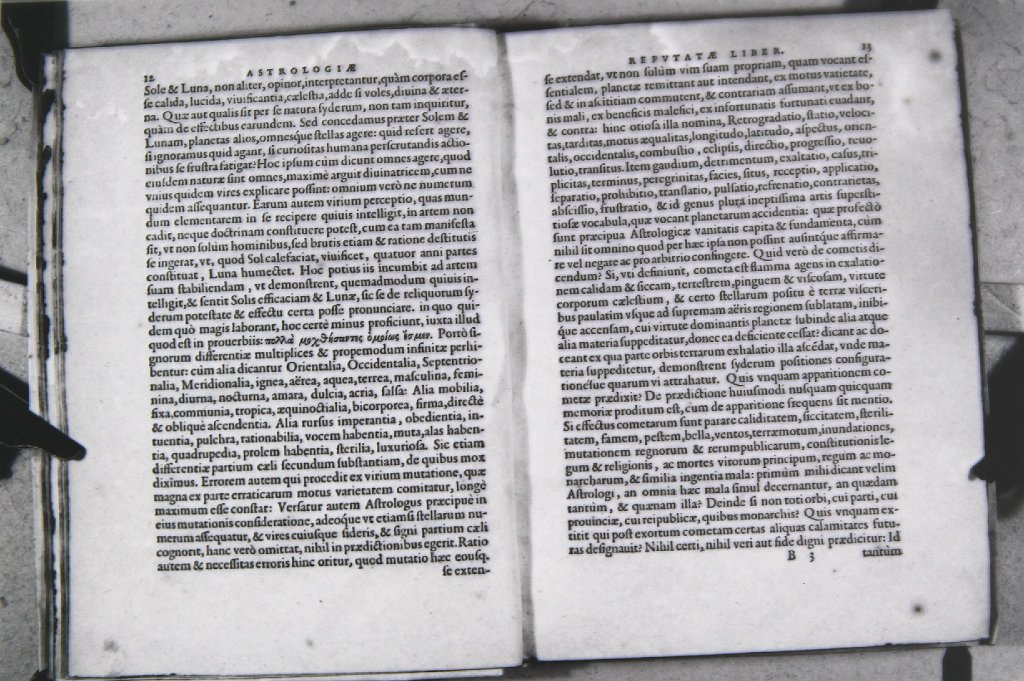 12 ASTROLOGIÆ
Sole & Luna, non aliter, opinor, interpretantur, quàm corpora es-
se calida, lucida, viuificantia, cælesta, adde si voles, diuina & æter-
na. Quæ aut qualis sit per se natura syderum, non tam inquiritur,
quàm de effectibus earundem. Sed concedamus præter Solem &
Lunam, planetas alios, omnesque stellas agere: quid refert agere,
si ignoramus quid agant, si curiositas humana perscrutandis actio-
nibus se frustra fatigat? Hoc ipsum cùm dicunt omnes agere, quod
eiusdem naturæ sint omnes, maximè arguit diuinatricem, cum ne
vnius quidem vires explicare possint: omnium verò ne numerum
quidem assequantur. Earum autem virium perceptio, quas mun-
dum elementarem in se recipere quiuis intelligit, in artem non
cadit, neque doctrinam constituere potest, cum ea tam manifesta
sit, vt non solùm hominibus, sed brutis etiam & ratione destitutis
se ingerat, vt, quod Sol calefaciat, viuificet, quatuor anni partes
constituat, Luna humectet. Hoc potius iis incumbit ad artem
suam stabiliendam, vt demonstrent, quemadmodum quiuis in-
telligit, & sentit Solis efficaciam & Lunæ, sic se de reliquorum sy-
derum potestate & effectu certa posse pronunciare. in quo qui-
dem quò magis laborant, hoc certè minus proficiunt, iuxta illud
quod est in prouerbiis: πολλὰ μοχθήσαντες ὁμοίως ἐσμεν. Portò si-
gnorum differentiæ multiplices & propemodum infinitæ perhi-
bentur: cùm alia dicantur Orientalia, Occidentalia, Septentrio-
nalia, Meridionalia, ignea, aërea, aquea, terrea, masculina, femi-
nina, diurna, nocturna, amara, dulcia, acria, salsa: Alia mobilia,
fixa, communia, tropica, æquinoctialia, bicorporea, firma, directè
& obliquè ascendentia. Alia rursus imperantia, obedientia, in-
tuentia, pulchra, rationabilia, vocem habentia, muta, alas haben-
tia, quadrupedia, prolem habentia, sterilia, luxuriosa. Sic etiam
differentiæ partium cæli secundum substantiam, de quibus mox
diximus. Errorem autem qui procedit ex virium mutatione, quæ
magna ex parte erraticarum motus varietatem comitatur, longè
maximum esse constat: Versatur autem Astrologus præcipuè in
eius mutationis consideratione, adeoque vt etiamsi stellarum nu-
merum assequatur, & vires cuiusque sideris, & signi partium cæli
cognorit, hanc verò omittat, nihil in prædictionibus egerit. Ratio
autem & necessitas erroris hinc oritur, quod mutatio hæc eousq́;
se exten-
REFVTATÆ LIBER. 13
se extendat, vt non solùm vim suam propriam, quam vocant es-
sentialem, planetæ remittant aut intendant, ex motus varietate,
sed & in ascititiam commutent, & contrariam assumant, vt ex bo-
nis mali, ex beneficis malefici, ex infortunatis fortunati euadant,
& contra: hinc otiosa illa nomina, Retrogradatio, statio, veloci-
tas, tarditas, motus æqualitas, longitudo, latitudo, aspectus, orien-
talis, occidentalis, combustio, eclipsis, directio, progressio, reuo-
lutio, transitus. Item gaudium, detrimentum, exaltatio, casus, tri-
plicitas, terminus, peregrinitas, facies, situs, receptio, applicatio,
separatio, prohibitio, translatio, pulsatio, refrenatio, contrarietas,
abscissio, frustratio, & id genus plura ineptissima artis supersti-
tiosæ vocabula, quæ vocant planetarum accidentia: quæ profectò
sunt præcipua Astrologicæ vanitatis capita & fundamenta, cùm
nihil sit omnino quod per hæc ipsa non possint ausintque affirma-
re vel negare ac pro arbitrio confingere. Quid verò de cometis di-
cendum? Si, vti definiunt, cometa est flamma agens in exalatio-
nem calidam & siccam, terrestrem, pinguem & viscosam, virtute
corporum cælestium, & certo stellarum positu è terræ visceri-
bus paulatim vsque ad supremam aëris regionem sublatam, inibi-
que accensam, cui virtute dominantis planetæ subinde alia atque
alia materia suppeditatur, donec ea deficiente cesset? dicant ac do-
ceant ex qua parte orbis terrarum exhalatio illa ascédat, vnde ma-
teria suppeditetur, demonstrent syderum positiones configura-
tionesue quarum vi attrahatur. Quis vnquam apparitionem co-
metæ prædixit? De prædictione huiusmodi nusquam quicquam
memoriæ proditum est, cùm de apparitione frequens sit mentio.
Si effectus cometarum sunt parare caliditatem, siccitatem, sterili-
tatem, famem, pestem, bella, ventos, terræmotum, inundationes,
mutationem regnorum & rerumpublicarum, constitutionis le-
gum & religionis, ac mortes virorum principum, regum ac mo-
narcharum, & similia ingentia mala: primùm mihi dicant velim
Astrologi, an omnia hæc mala simul decernantur, an quædam
tantùm, & quænam illa? Deinde si non toti orbi, cui parti, cui
prouinciæ, cui reipublicæ, quibus monarchis? Quis vnquam ex-
titit qui post exortum cometam certas aliquas calamitates futu-
ras designauit? Nihil certi, nihil veri aut fide digni prædicitur: Id
B 3 tantùm